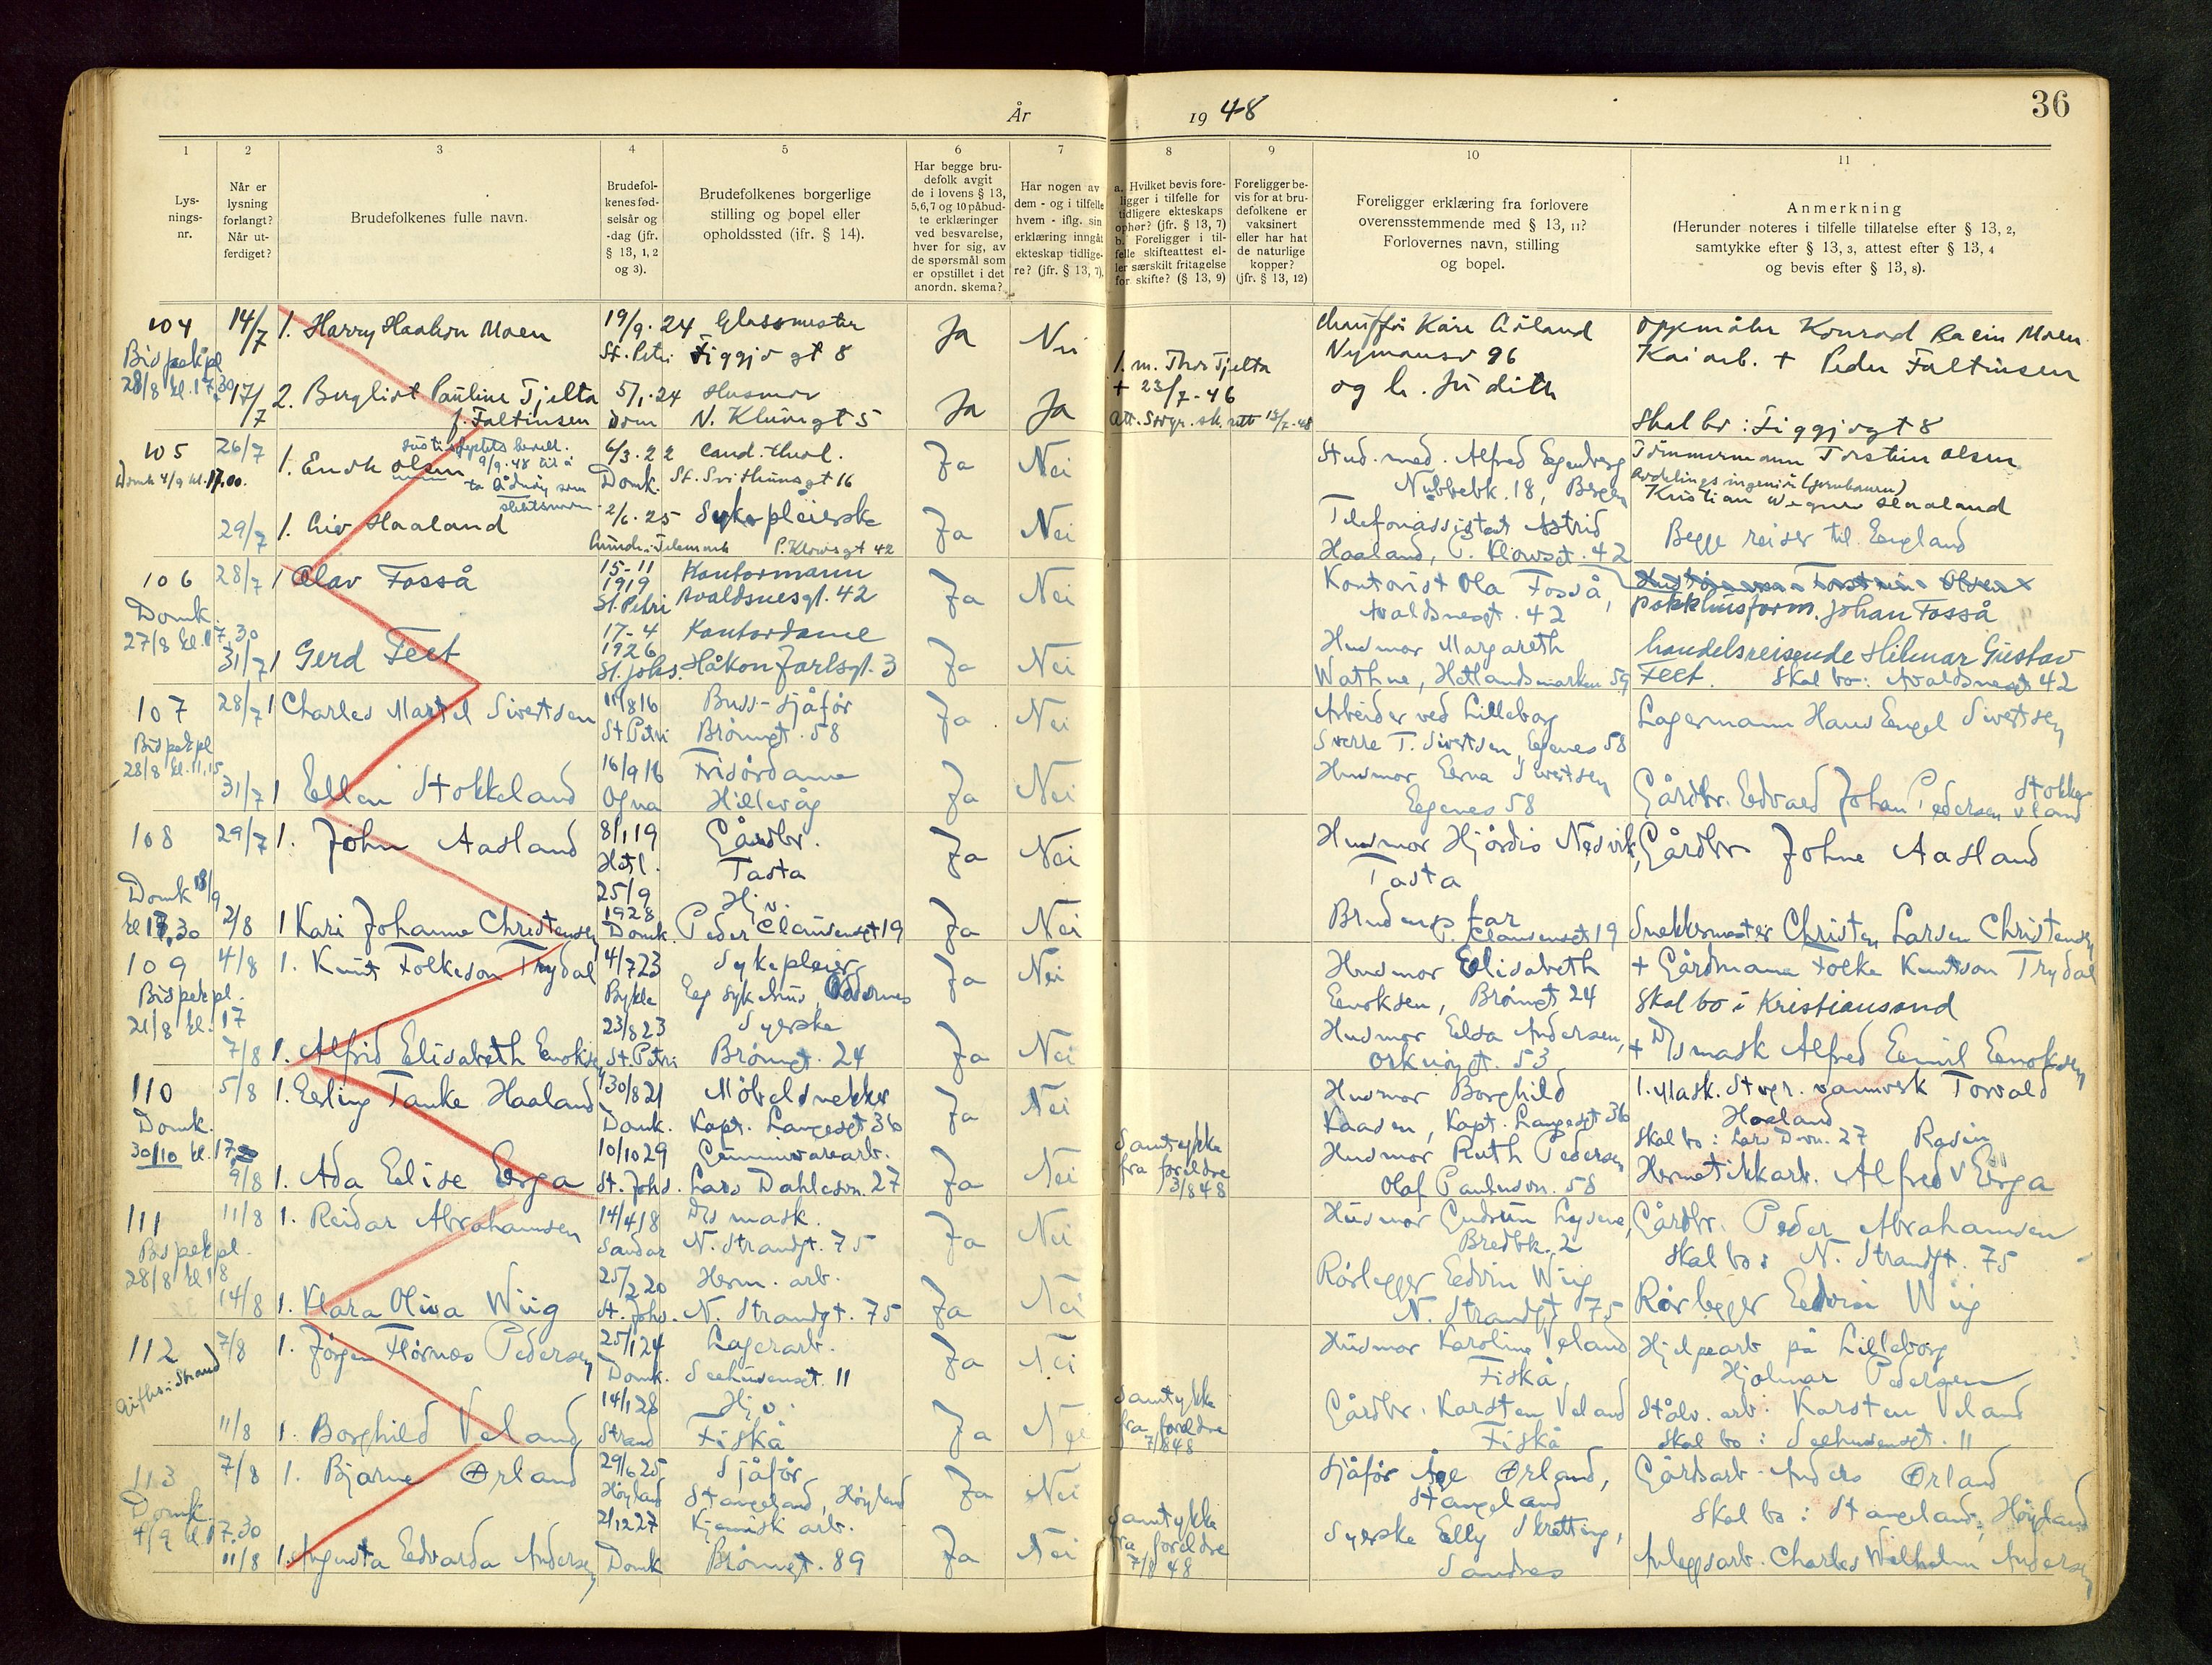 År 1948
36
1
Lys-
nings-
nr.
2
Når er
lysning
forlangt?
Når ut-
ferdiget?
3
Brudefolkenes fulle navn.
4
Brudefol-
kenes fød-
selsår og
-dag (jfr.
§ 13, 1, 2
og 3).
5
Brudefolkenes borgerlige
stilling og bopel eller
opholdssted (ifr. § 14).
6
Har begge bru-
defolk avgit
de i lovens § 13,
5,6,7 og 10 påbud-
te erklæringer
ved besvarelse,
hver for sig, av
de spørsmål som
er opstillet i det
anordn. skema?
7
Har nogen av
dem - og i tilfelle
hvem - iflg. sin
erklæring inngåt
ekteskap tidlige-
re? (jfr. § 13, 7).
8
a. Hvilket bevis fore-
ligger i tilfelle for
tidligere ekteskaps
ophør? (jfr. § 13, 7)
b. Foreligger i til-
felle skifteattest el-
ler særskilt fritagelse
for skifte? (§ 13, 9)
9
Foreligger be-
vis for at bru-
defolkene er
vaksinert
eller har hat
de naturlige
kopper?
(jfr. § 13, 12)
10
Foreligger erklæring fra forlovere
overensstemmende med § 13, 11?
Forlovernes navn, stilling
og bopel.
11
Anmerkning
(Herunder noteres i tilfelle tillatelse efter § 13, 2,
samtykke efter § 13, 3, attest efter § 13, 4
og bevis efter § 13, 8).
104 14/7 1. Harry Haakon Moen 19/9.24 Glassmester Ja Nei Chauffør Kåre Årland oppmåler Konrad Moen
Bispekpl St. Petri Figgjogt 8 Nymansv 96 Kaiarb. + Peder Faltinsen
28/8 kl. 17.30 1. m. Thor Tjelta og h. Judith
17/7 2. Bergliot Pauline Tjelta 5/1.24 Husmor Ja Ja + 23/7-46
f. Faltinsen Dom N. Klovgt 5 Att. Svgr. sk.rett 15/7-48 Skal bo: Figgjogt 8
105 26/7 1. Enok Olsen 6/3.22 Cand. theol. Ja Nei Stud. med. Alfred Egenberg Tømmermann Torstein Olsen
9/9.48 til å
ta Ådnøy som
slektsnavn
Domk 4/9 kl. 17.00. Domk. St. Svithunsgt 16 Nubbebk. 18, Bergen Avdelingsingeniør (jernbanen)
29/7 1. Liv Haaland 2/6.25 Sykepleierske Ja Nei Telefonassistent Astrid Kristian Wegner Haaland
Telemark P. Klowsgt 42 Haaland, P. Klowsgt. 42 Begge reiser til England
106 28/7 1 Olav Fosså 15-11 Kontormann Ja Nei Kontorist Ola Fosså,
Domk. 1919 St. Petri Avaldsnesgt. 42 Avaldsnesgt. 42 Pakkhusform. Johan Fosså
27/8 kl. 17.30 17-4 Kontordame Husmor Margareth handelsreisende Hilmar Gustav
31/7 1 Gerd Feet 1926 St. Johs. Håkon Jarlsgt. 3 Ja Nei Wathne, Hetlandsmarken 59 Feet. Skal bo: Avaldsnesgt 42
107 28/7 1 Charles Martel Sivertsen 11/8 16 Buss-sjåfør Ja Nei Arbeider ved Lilleborg Lagermann Hans Engel Sivertsen
Bispekpl St Petri Brønngt. 58 Sverre T. Sivertsen, Egenes 58
28/8 kl. 11,15 16/9 16 Frisørdame Husmor Erna Sivertsen
31/7 1 Ellen Stokkeland Ogna Hillevåg Ja Nei Egenes 58 Gårdbr. Edvard Johan Pedersen Stokkeland
108 29/7 1. John Aasland 8/1 19 Gårdbr. Ja Nei Husmor Hjørdis Nesvik, Gårdbr Johne Aasland
Hetl. Tasta Tasta
Domk 18/9 25/9 Hjv.
kl 17,30 2/8 1 Kari Johanne Christensen 1928 Domk. Peder Clausensgt 19 Ja Nei Brudens far P. Clausensgt 19 Snekkermester Christen Larsen Christensen
109 4/8 1. Knut Folkeson Trydal 4/7 23 Sykepleier Ja Nei Husmor Elisabeth + Gårdmann Folke Knutson Trydal
Bispekpl. Bykle Eeg sykehus, Oddernes Enoksen, Brønngt 24 Skal bo i Kristiansand
21/8 kl. 17 23/8 23 Syerske Husmor Elsa Andersen,
7/8 1. Alfrid Elisabeth Enoksen St. Petri Brønngt. 24 Ja Nei Orknøygt. 53 + D/s mask Alfred Emil Enoksen
110 5/8 1. Erling Tanke Haaland 30/8 21 Møbelsnekker Ja Nei Husmor Borghild 1. Mask. Stvgr. vannverk Torvald
Domk. Domk. Kapt. Langesgt 36 Kaasen, Kapt. Langesgt 36 Haaland
30/10 kl. 17 10/10 29 Gummivarearb. Samtykke Husmor Ruth Pedersen Skal bo: Lars D.vn. 27 Rasin
9/8 1. Ada Elise Erga St. Johs. Lars Dahlesvn. 27 Ja Nei fra foreldre 3/8 48 Olaf Paulusvn. 58 Hermetikkarb. Alfred Erga
111 11/8 1. Reidar Abrahamsen 14/4 18 D/s mask. Ja Nei Husmor Gudrun Lysene, Gårdbr. Peder Abrahamsen
Bispekpl. Sandar N. Strandgt. 75 Bredbk. 2 Skal bo: N. Strandgt. 75
28/8 kl 18 25/2 20 Herm. arb. Rørlegger Edvin Wiig
14/8 1. Klara Oliva Wiig St. Johs. N. Strandgt. 75 Ja Nei N. Strandgt 75 Rørlegger Edvin Wiig
112 7/8 1. Jørgen Flørnes Pedersen 25/1 24 Lagerarb. Ja Nei Husmor Karoline Veland Hjelpearb på Lilleborg
Giftes i Strand Domk. Seehusensgt. 11 Fiskå, Hjalmar Pedersen
14/1 28 Hjv. Samtykke Gårdbr. Karsten Veland Stålv. arb. Karsten Veland
11/8 1. Borghild Veland Strand Fiskå Ja Nei fra foreldre 7/8 48 Fiskå Skal bo: Seehusensgt. 11
113 7/8 1. Bjarne Ørland 29/6 25 Sjåfør Ja Nei Sjåfør Åge Ørland, Gårdsarb. Anders Ørland
Domk. Høyland Stangeland, Høyland Stangeland Skal bo: Stangeland, Høyland
4/9 kl. 17.30 2/12 27 Kjemisk arb. Samtykke Syerske Elly Skretting,
11/8 1. Augusta Edvarda Andersen Domk Brønngt. 89 Ja Nei fra foreldre 7/8 48 Sandnes Anleggsarb. Charles Wilhelm Andersen